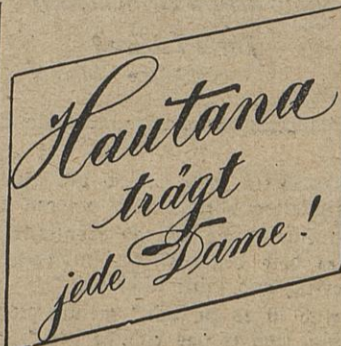 Hautana
trägt
jede Dame!